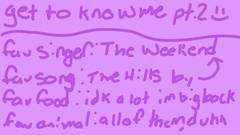 get to know me pt.2 :)
fav singer: The Weekend
fav song: The Hills by
fav food: idk a lot im big back
fav animal: all of them, duhh